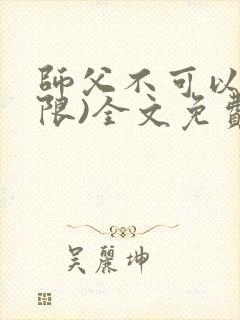 師父不可以
限)全文免費
吳麗坤